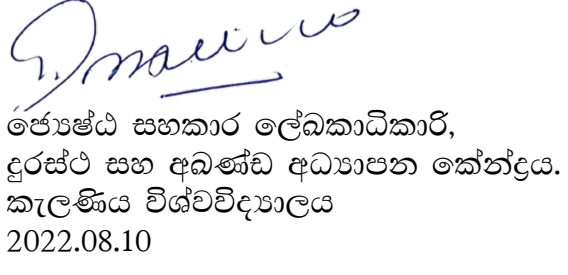 ජ්‍යෙෂ්ඨ සහකාර ලේඛකාධිකාරි,
දුරස්ථ සහ අඛණ්ඩ අධ්‍යාපන කේන්ද්‍රය.
කැලණිය විශ්වවිද්‍යාලය
2022.08.10